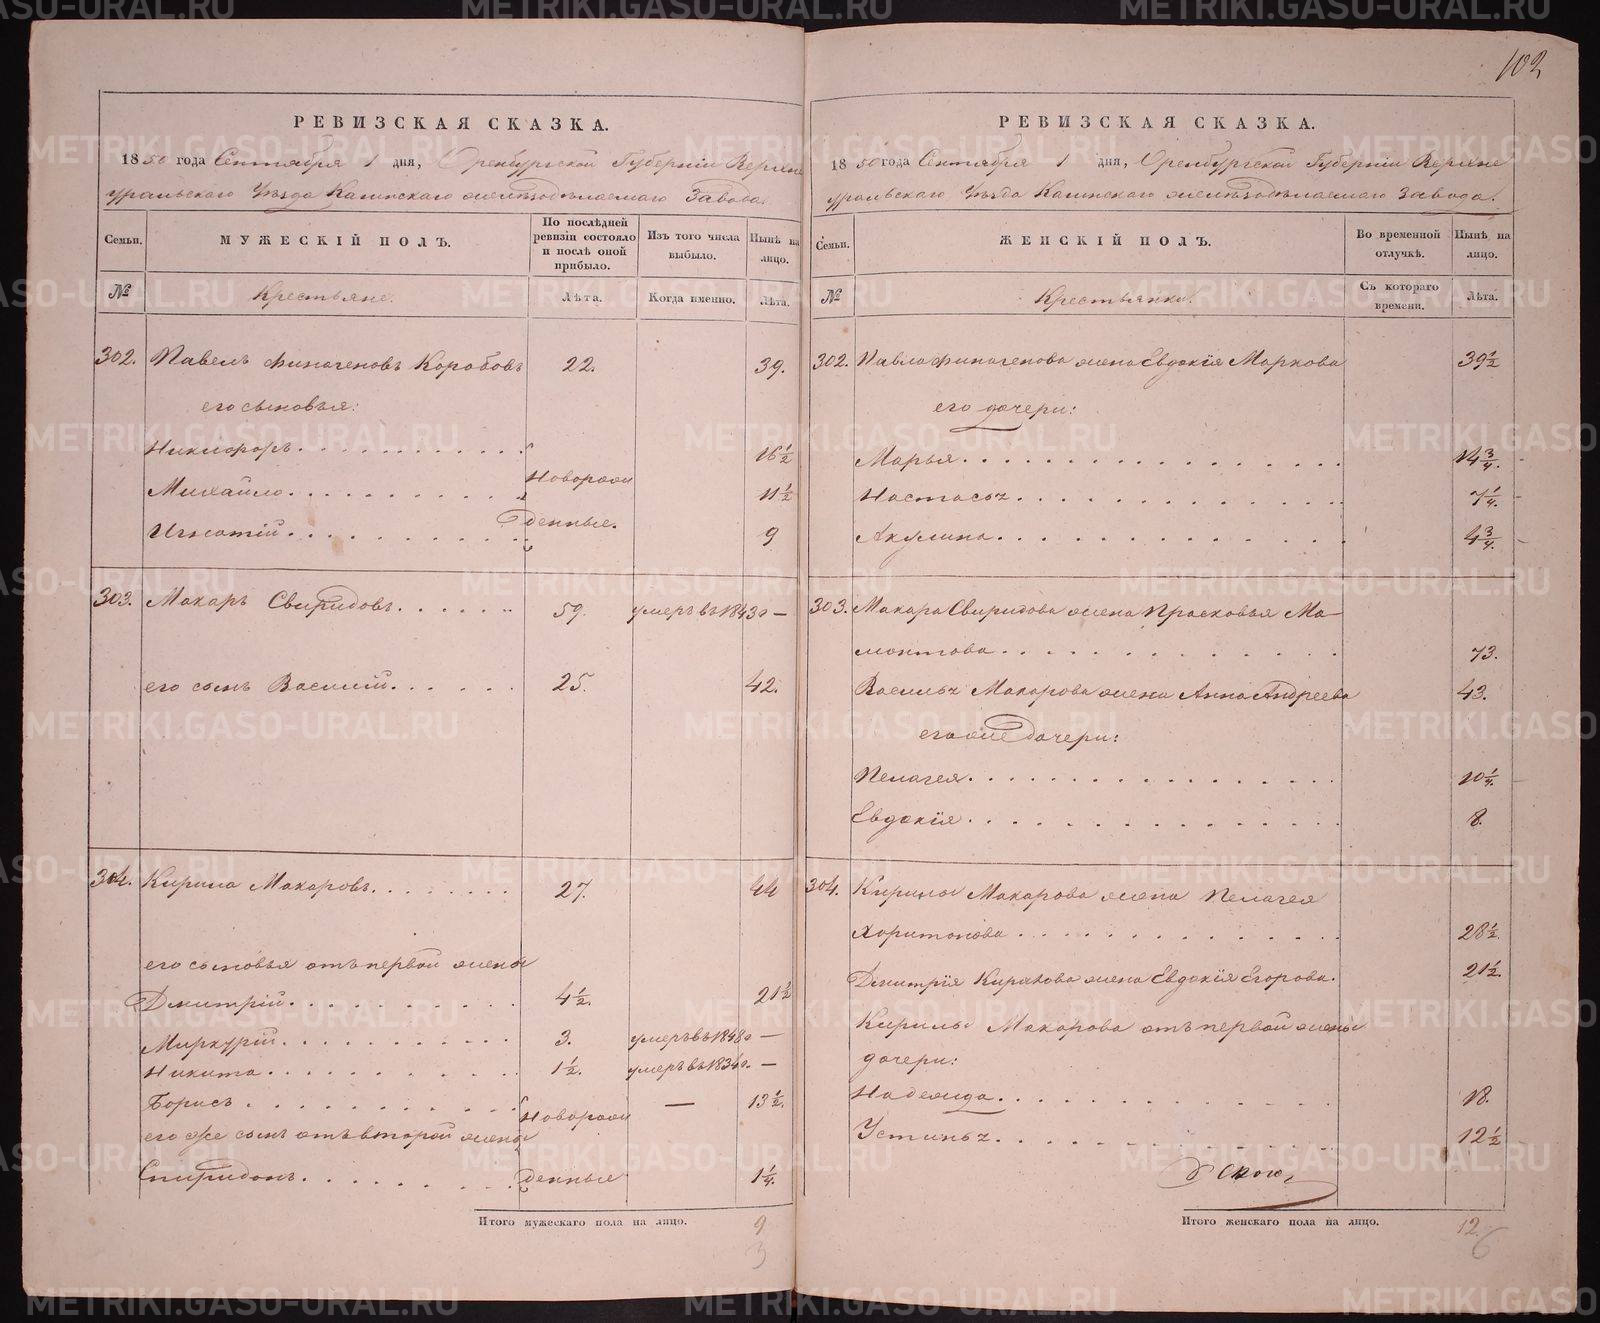 102
РЕВИЗСКАЯ СКАЗКА.
1850 года Сентября 1 дня, Оренбургской Губерніи Верхне
уральскаго Уѣзда Кагинскаго желѣзодѣлаемаго Завода.
Семьи.
МУЖЕСКІЙ ПОЛЪ.
По послѣдней ревизіи состояло и послѣ оной прибыло.
Изъ того числа выбыло.
Нынѣ на лицо.
№
Крестьяне.
Лѣта.
Когда именно.
Лѣта.
302. Павелъ Финагеновъ Коробовъ 22. 39.
его сыновья:
Никифоръ. 16 1/2
Новорож
Михайло. 11 1/2
денные.
Игнатій. 9
303. Макаръ Свиридовъ. 59. умеръ въ 1843 о —
его сынъ Василій. 25. 42.
304. Кирила Макаровъ. 27. 44
его сыновья отъ первой жены
Дмитрій. 4 1/2. 21 1/2
Миркурій. 3. умеръ въ 1848 о —
Никита. 1 1/2. умеръ въ 1834 о. —
Борисъ. — 13 1/2.
Новорож
его же сынъ отъ второй жены
Спиридонъ. денные 1 1/4.
Итого мужескаго пола на лицо. 9
3
РЕВИЗСКАЯ СКАЗКА.
1850 года Сентября 1 дня, Оренбургской Губерніи Верхне
уральскаго Уѣзда Кагинскаго желѣзодѣлаемаго Завода.
Семьи.
ЖЕНСКІЙ ПОЛЪ.
Во временной отлучкѣ.
Нынѣ на лицо.
№
Крестьянки.
Съ котораго времени.
Лѣта.
302. Павла Финагенова жена Евдокія Маркова 39 1/2
его дочери:
Марья. 14 3/4.
Настасья. 7 1/4.
Акулина. 4 3/4.
303. Макара Свиридова жена Прасковья Ма-
монтова. 73.
Василья Макарова жена Анна Андреева 43.
его же дочери:
Пелагея. 10 1/4.
Евдокія. 8.
304. Кирилы Макарова жена Пелагея
Харитонова. 28 1/2.
Дмитрія Кирилова жена Евдокія Егорова. 21 1/2.
Кирилы Макарова отъ первой жены
дочери:
Надежда. 18.
Устинья. 12 1/2
Итого женскаго пола на лицо. 12.
6
METRIKI.GASO-URAL.RU